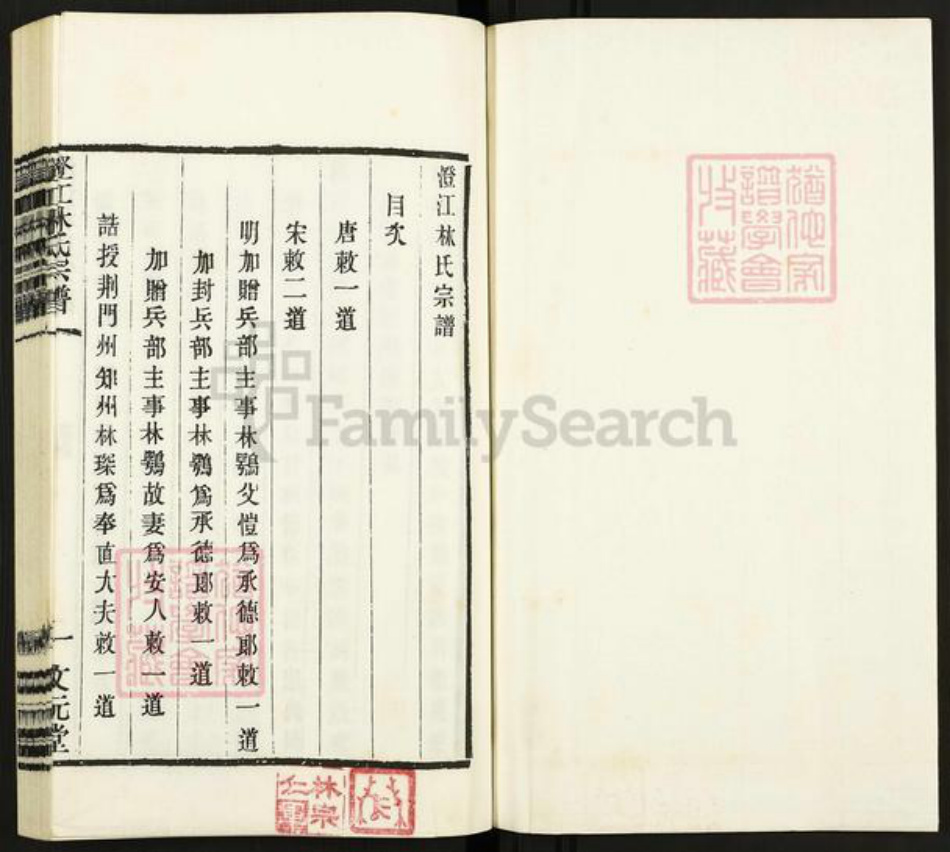 澄江林氏宗譜
目次
唐敕一道
宋敕二道
明加贈兵部主事林鶚父愷爲承德郎敕一道
加封兵部主事林鶚爲承德郎敕一道
加贈兵部主事林鶚故妻爲安人敕一道
誥授荆門州知州林琛爲奉直大夫敕一道
澄江林氏宗譜
一
文元堂
FamilySearch
譜學會
收藏
林宗